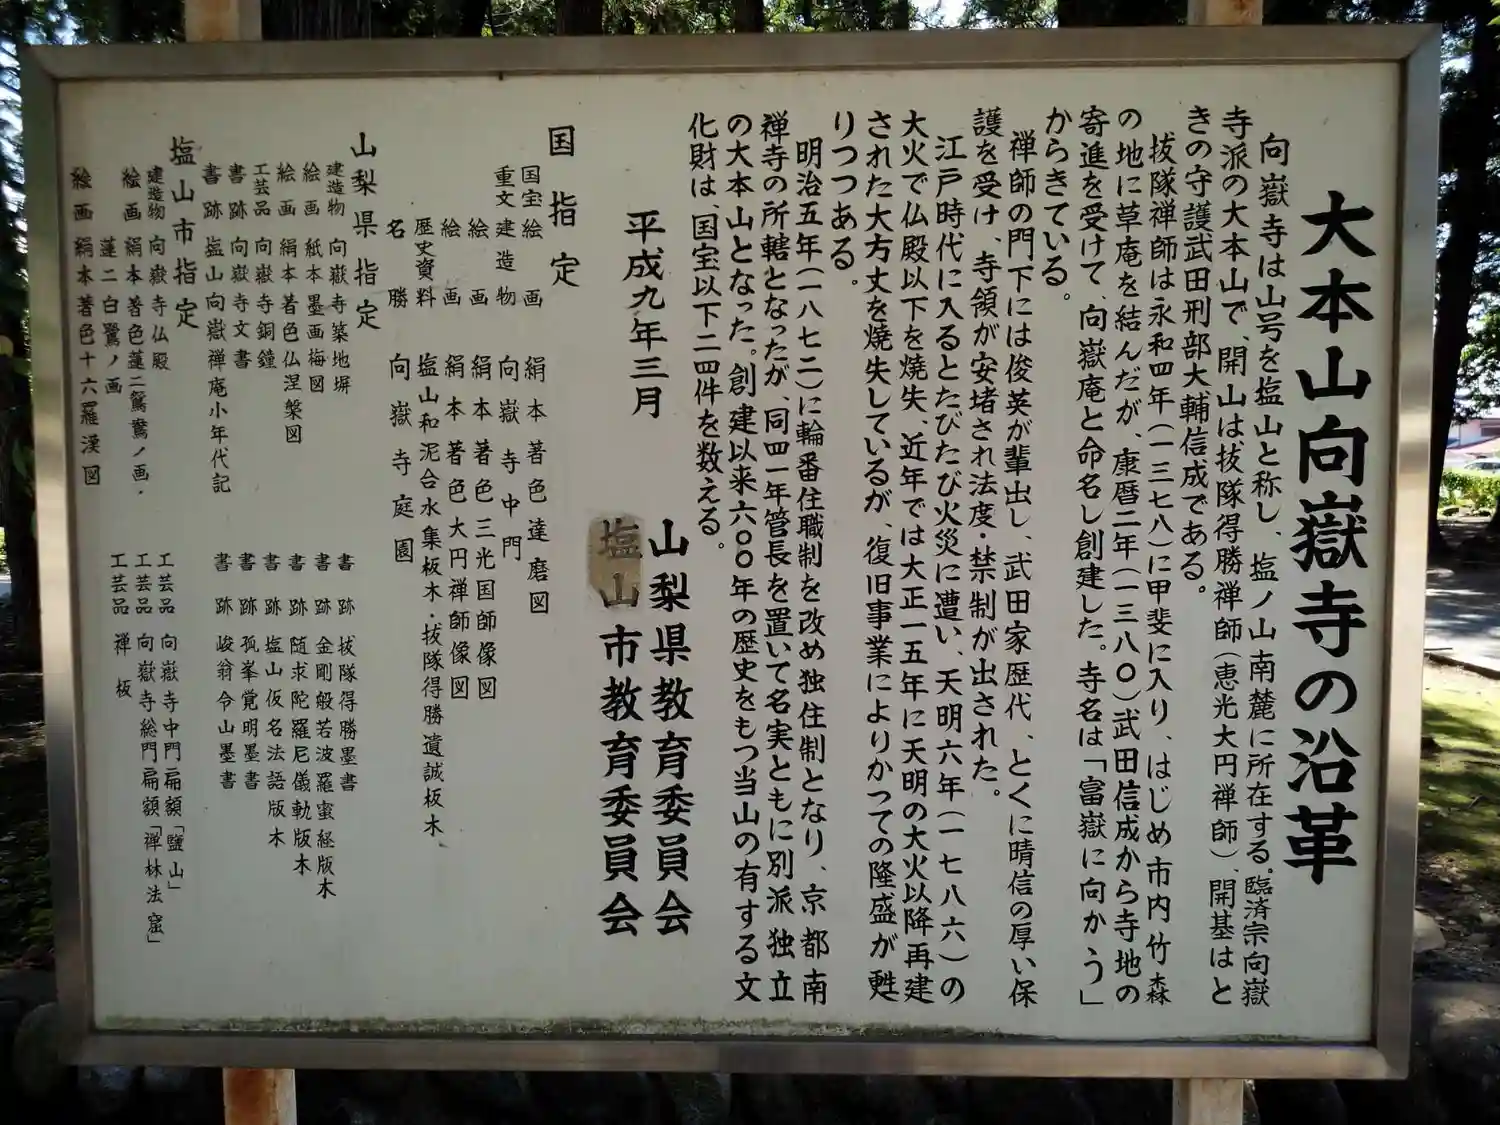 大本山向嶽寺の沿革
向嶽寺は山号を塩山と称し、塩ノ山南麓に所在する。臨済宗向嶽
寺派の大本山で、開山は抜隊得勝禅師(恵光大円禅師)、開基はと
きの守護武田刑部大輔信成である。
抜隊禅師は永和四年(一三七八)に甲斐に入り、はじめ市内竹森
の地に草庵を結んだが、康暦二年(一三八〇)武田信成から寺地の
寄進を受けて、向嶽庵と命名し創建した。寺名は「富嶽に向かう」
からきている。
禅師の門下には俊英が輩出し、武田家歴代、とくに晴信の厚い保
護を受け、寺領が安堵され法度・禁制が出された。
江戸時代に入るとたびたび火災に遭い、天明六年(一七八六)の
大火で仏殿以下を焼失、近年では大正一五年に天明の大火以降再建
された大方丈を焼失しているが、復旧事業によりかつての隆盛が甦
りつつある。
明治五年(一八七二)に輪番住職制を改め独住制となり、京都南
禅寺の所轄となったが、同四一年管長を置いて名実ともに別派独立
の大本山となった。創建以来六〇〇年の歴史をもつ当山の有する文
化財は、国宝以下二四件を数える。
平成九年三月
山梨県教育委員会
塩山市教育委員会
国指定
国宝 絵画 絹本著色達磨図
重文 建造物 向嶽寺中門
絵画 絹本著色三光国師像図
絵画 絹本著色大円禅師像図
歴史資料 塩山和泥合水集板木・抜隊得勝遺誡板木
名勝 向嶽寺庭園
山梨県指定
建造物 向嶽寺築地塀
絵画 紙本墨画梅図
絵画 絹本著色仏涅槃図
工芸品 向嶽寺銅鐘
書跡 向嶽寺文書
書跡 塩山向嶽禅庵小年代記
書跡 抜隊得勝墨書
書跡 金剛般若波羅蜜経版木
書跡 随求陀羅尼儀軌版木
書跡 塩山仮名法語版木
書跡 孤峯覚明墨書
書跡 峻翁令山墨書
塩山市指定
建造物 向嶽寺仏殿
絵画 絹本著色蓮二鴛鴦ノ画・
蓮二白鷺ノ画
絵画 絹本著色十六羅漢図
工芸品 向嶽寺中門扁額「鹽山」
工芸品 向嶽寺総門扁額「禅林法窟」
工芸品 禅板